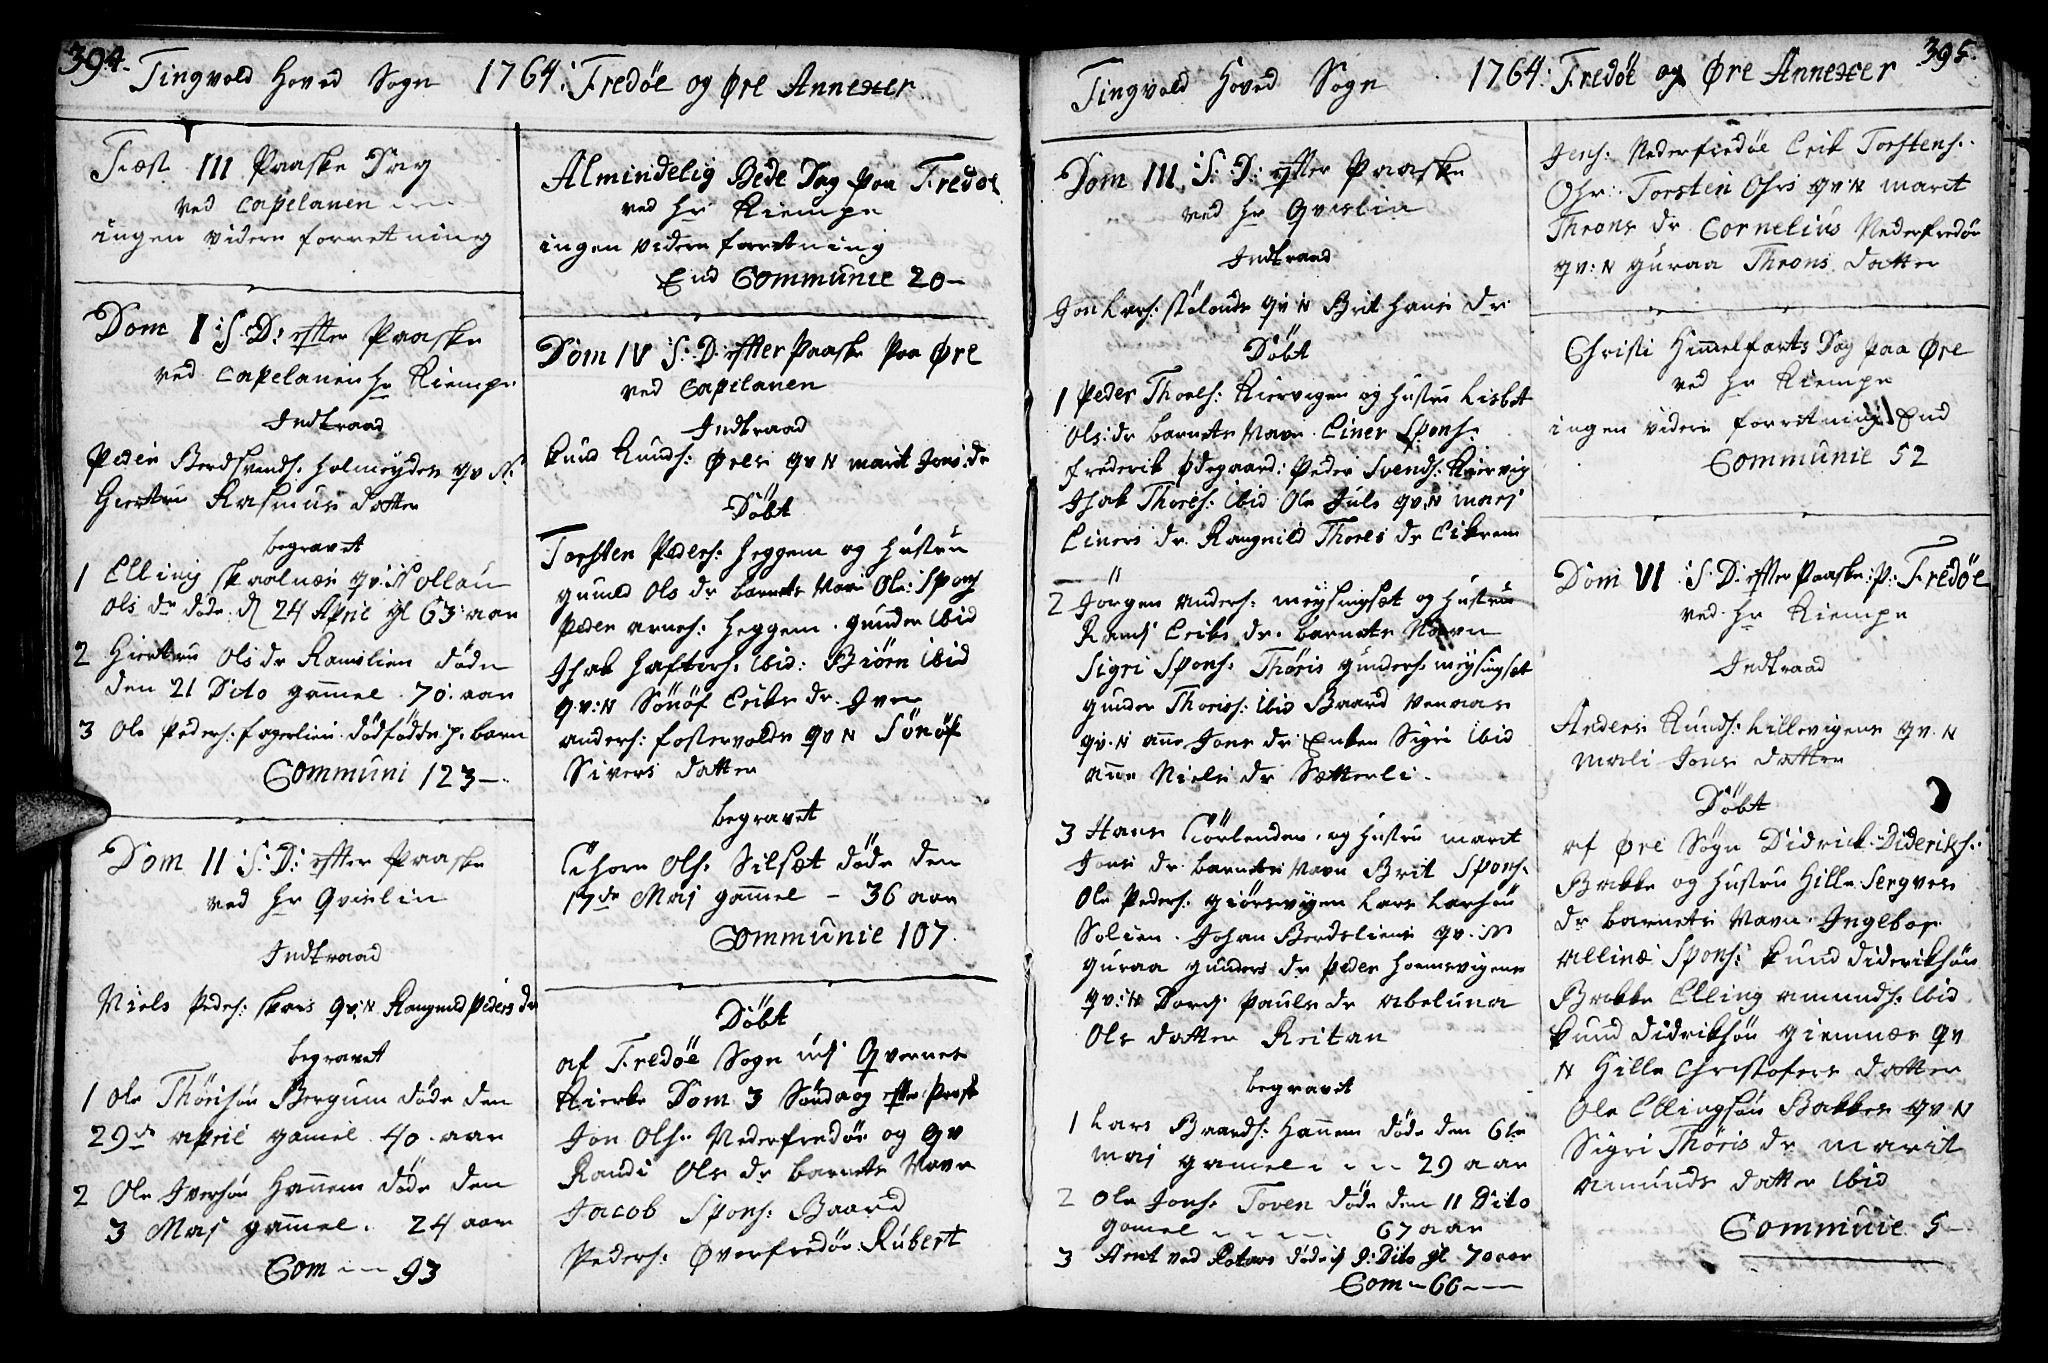 394.
Tingvold Hoved Sogn 1764: Fredøe og Øre Annexer
Fæst III Paaske Dag
ved Capelanen
ingen videre forretning
Dom I S: D: efter Paaske
ved Capelanen hr Kiempe
Indtraad
Peder Berdsvends: Holmeyden qv N:
Giertru Rasmus datter
begravet
1 Elling skaalnæs qv: N ollau
Ols dr døde d 24 April gl 63 aar
2 Giertru Ols dr Ramslien døde
den 21 Dito gammel 70 aar
3 Ole Peders: fagerliens dødfødde p: barn
Communi 123
Dom II S: D: efter Paaske
ved hr Qvislin
Indtraad
Niels Peders: skars qv: N Rangnild Peders dr
begravet
1 Ole Thørisøn Bergum døde den
29de april gamel 40 aar
2 Ole Iversøn Hannem døde den
3 Maj gammel 24 aar
Com 93
Almindelig Bede Dag paa Fredøe
ved hr Kiempe
ingen videre forretning
End Communie 20
Dom IV S: D: efter Paaske paa Øre
ved Capelanen
Indtraad
Knud Knuds: Øren qv N marit Jons: dr
Døbt
Torsten Peders: Heggem og Hustru
gunild Ols dr barnets Navn Ole: Spons
Peder arnes: Heggem gunder ibid
Isak Hafters: ibid: Biørn ibid
qv: N Sønøf Eriks dr Iver
anders: fostervolds qv N Sønøf
Sivers datter
begravet
Thore Ols: Silsæt døde den
17de Maj gammel 36 aar
Communie 107
Døbt
af Fredøe Sogn udj Qvernes
Kierke Dom 3 Søndag efter Paask
Jon Ols: Nederfredøe og qv
Randi Ols dr barnets Navn
Jacob Spons: Baard
Peders: Øverfredøe Rubert
395.
Tingvold Hoved Sogn 1764: Fredøe og Øre Annexer
Dom III S: D: efter Paaske
ved hr Qvislin
Indtraad
Jon Lars: stølends qv N Brit Hans dr
Døbt
1 Peder Thoels: Kiervigen og hustru Lisbet
Ols: dr barnets Navn Einer Spons:
Frederik Ødegaard: Peder Svends: Kiervig
Isak Thores: ibid Ole Juls qv: N marj
Einers dr Rangnild Thores dr Eikrem
2 Jørgen Anders: meysingsæt og Hustru
Randj Eriks dr barnets Navn
Sigri Spons: Thøris gunders: meysingsæt
gunder Thoriss: ibid Baard Vennas
qv: N ane Jons dr Enken Sigri ibid
ane Niels dr Sætterli
3 Hans Tiørlenden og Hustru marit
Jons dr barnets Navn Brit Spons:
Ole Peders: giørsvigen Lars Larsøn
Solien Johan Berdsliens qv: N
guraa gunders dr Peder Holmsvigens
qv: N Dordj Pauls dr abeluna
Ols datter Reitan
begravet
1 Lars Baards: Hannem døde den 6te
Maj gamel 29 aar
2 Ole Jons: Toven døde den 11 Dito
gamel 67 aar
3 Arnt ved Rotaas døde d 9: Dito gl 70 aar
Com 66
Jens: Nederfredøe Erik Torstens:
Ohr: Torsten Ohrs qv: N marit
Throns dr Cornelius Nederfredøe
qv: N guraa Throns datter
Christi Himelfarts Dag paa Øre
ved hr Kiempe
ingen videre forretning End
Communie 52
Dom VI S: D: efter Paaske: p: Fredøe
ved hr Kiempe
Indtraad
Anders Knuds: Lillevigens qv: N
Mali Jons datter
Døbt
af Øre Sogn Didrick Dideriks:
Bakke og Hustru Hille Sergves
dr barnets Navn Ingebor
Spons: Knud Dideriksøn
Bakke Elling amunds: ibid
Knud Didriksøn giemnæs qv
N Hille Christofers datter
Ole Ellingsøn Bakken qv N
Sigri Thøris dr marit
amunds datter ibid
Communie 5